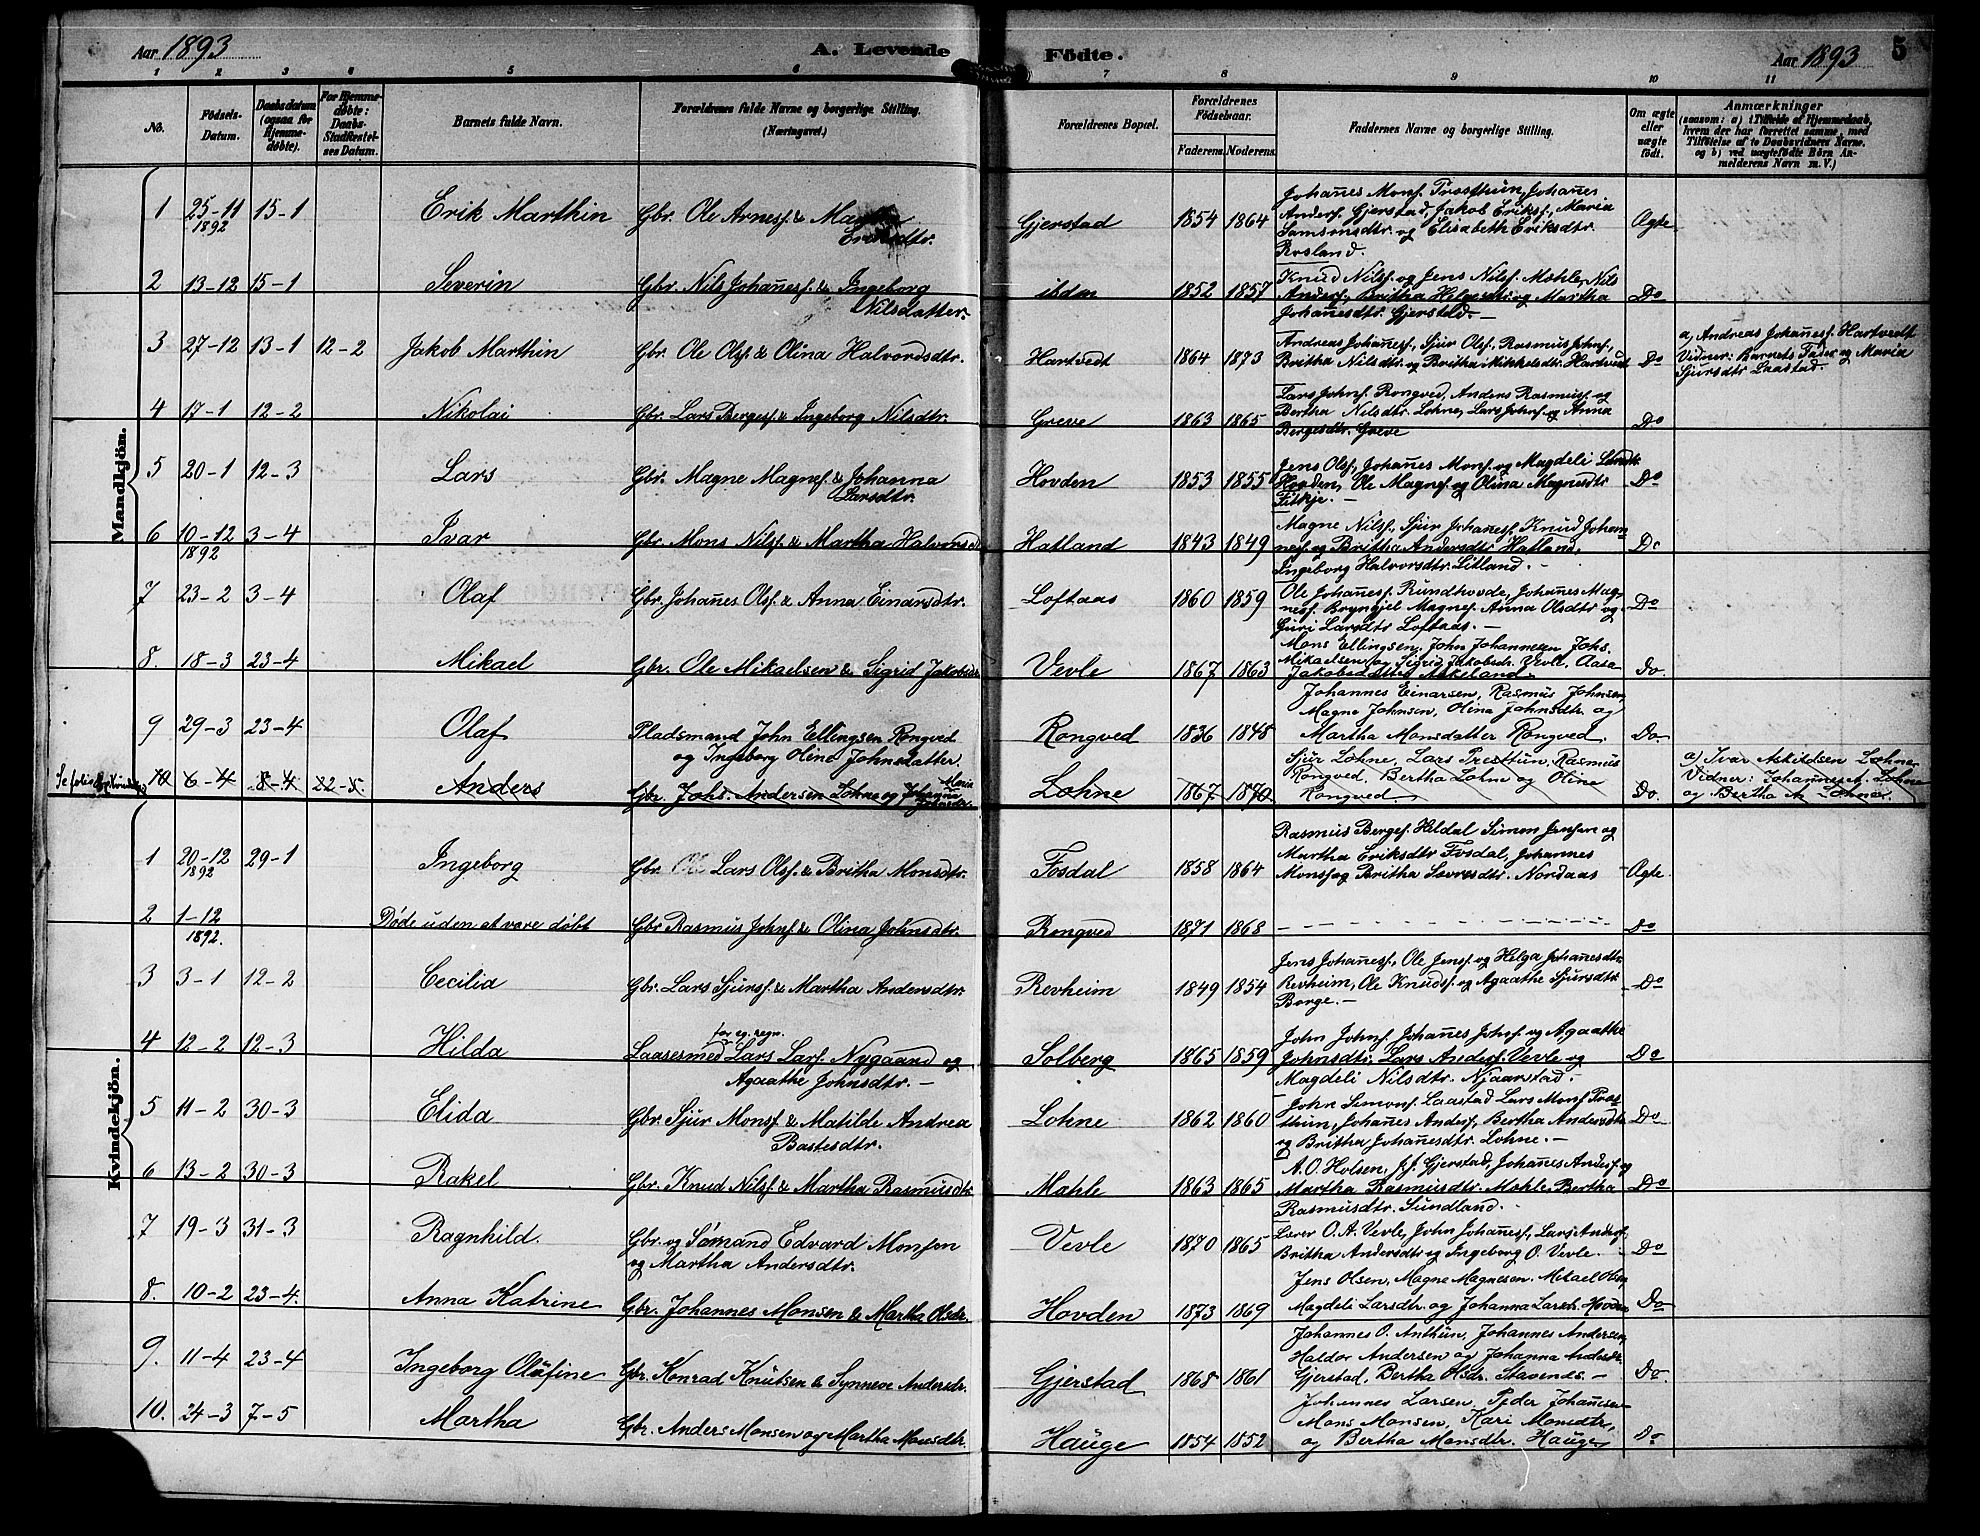 Aar 1893
A. Levende Fødte.
Aar 1893 5
1 2 3 6 5 6 7 8 9 10 11
No. Fødsels-Datum. Daabsdatum (ogsaa for Hjemme-døbte). For Hjemme-døbte: Daabs-Stadfæstel-ses Datum. Barnets fulde Navn. Forældrenes fulde Navne og borgerlige Stilling. (Næringsvei.) Forældrenes Bopæl. Forældrenes Fødselsaar. Faderens. Moderens. Faddernes Navne og borgerlige Stilling. Om ægte eller uægte født. Anmærkninger (saasom: a) i Tilfælde af Hjemmedaab, hvem der har forrettet samme, med Tilføielse af to Daabsvidners Navne, og b) ved uægtefødte Børn An-melderens Navn m. V.)
Mandkjön.
1 25-11 1892 15-1 Erik Marthin Gbr. Ole Arnesf. & Eriksdtr. Gjerstad 1854 1864 Johañes Monsf. Trosthun, Johañes
Andersf. Gjerstad, Jakob Eriksf., Maria
Samsonsdtr. og Elisabeth Eriksdtr.
Rosland. Ægte
2 13-12 15-1 Severin Gbr. Nils Johañesf. & Ingeborg
Nilsdatter. ibdm 1852 1857 Knud Nilsf. og Jens Nilsf. Mohle, Nils
Andersf., Britha og Martha
Johañesdtr. Gjerstad. — Do
3 27-12 13-1 12-2 Jakob Marthin Gbr. Ole Olsf. & Olina Halvorsdtr. Hartvedt 1864 1873 Andreas Johañesf., Sjur Olsf., Rasmus Johnsf.,
Britha Nilsdtr. og Britha Mikkelsdtr. Hartvedt Do a, Andreas Johañesf. Hartvedt
Vidner: Barnets Fader og Maria
Sjursdtr Laastad.
4 17-1 12-2 Nikolai Gbr. Lars Bergesf. & Ingeborg Nilsdtr. Greve 1863 1865 Lars Johnsf. Rongved, Anders Rasmusf. og
Bertha Nilsdtr. Lohne, Lars Johnsf. og Anna
Bergesdtr. Greve Do
5 20-1 12-3 Lars Gbr. Magne Magnesf. & Johanna
Larsdtr. Hovden 1853 1855 Jens Olsf., Johañes Monsf. og Magdeli Larsdtr.
Hovden, Ole Magnesf. og Olina Magnesdtr
— Do
6 10-12 1892 3-4 Ivar Gbr. Mons Nilsf. & Martha Halvorsd. Hatland 1843 1849 Magne Nilsf., Sjur Johañesf., Knud Johan-
nesf. og Britha Andersdtr Hatland,
Ingeborg Halvorsdtr. Litland. — Do
7 23-2 3-4 Olaf Gbr. Johañes Olsf. & Anna Einarsdtr. Loftaas 1860 1859 Ole Johañesf. Rundhovde, Johañes Mag-
nesf. Bryngjel Magnesf. Anna Olsdtr og
Guri Larsdtr Loftaas. — Do
8. 18-3 23-4 Mikael Gbr. Ole Mikaelsen & Sigrid Jakobsdr. Vevle 1867 1863 Mons Ellingsen, John Johannesen, Johs.
Mikaelsen og Sigrid Jakobsdr. Vevle, Aasa
Jakobsdatter Askeland. Do.
9 29-3 23-4 Olaf Pladsmand John Ellingsen Rongved
og Ingeborg Olina Johnsdatter. Rongved 1836 1848 Johannes Einarsen, Rasmus Johnsen,
Magne Johnsen, Olina Johnsdtr. og
Martha Monsdatter Rongved. Do.
10 6-4 8-4 22-5. Anders Gbr. Johs. Andersen Lohne og Johanna Maria Lohne 1867 1870 Sjur Lohne, Lars Trosttun, Rasmus
Rongved, Bertha Lohne og Oline
Rongved. Do. a) Ivar Askildsen Lohne
Vidner: Johannes A. Lohne
og Bertha A. Lohne.
Kvindekjön.
1 20-12 1892 29-1 Ingeborg Gbr. Lars Olsf. & Britha Monsdtr. Fosdal 1858 1864 Rasmus Bergesf. Hildal Simon Jensen og
Martha Eriksdtr Fosdal, Johannes
Monsf. og Britha Nordaas Ægte.
2 1-12 1892. Døde uden at være døbt Gbr Rasmus Johnsf. & Olina Johnsdtr. Rongved 1871 1868 — Do
3 3-1 12-2 Cecilia Gbr. Lars Sjursf. & Martha Andersdtr. Revheim 1849 1854 Jens Johañesf., Ole Jensf. og Helga Johañesdtr
Revheim, Ole Knudsf. og Agaathe Sjursdtr
Borge. — Do
4 12-2 12-3 Hilda for eg. regn.
Laasesmed Lars Larsf. Nygaard og
Agaathe Johnsdtr. — Solberg 1865 1859 John Johnsf. Johañes Johnsf. og Agaathe
Johnsdtr. Lars Andersf. Vevle og
Magdeli Nilsdtr. Njaarstad. Do
5 11-2 30-3 Elida Gbr. Sjur Monsf. & Matilde Andrea
Bastesdtr. Lohne 1862 1860 John Simonsf. Laastad Lars Monsf. Tros-
thun, Johañes Andersf., Bertha Andersdtr
og Britha Johañesdtr. Lohne. — Do
6 13-2 30-3 Rakel Gbr. Knud Nilsf. & Martha Rasmusdtr Mohle 1863 1865 A. O. Holsen, J. J. Gjerstad, Johañes Andersf. og
Martha Rasmusdtr. Mohle, Bertha
Rasmusdtr. Sundland. Do
7 19-3 31-3 Ragnhild. Gbr. og Sømand Edvard Monsen
og Martha Andersdtr. Vevle 1870 1865 Lærer O. A. Vevle, John Johañesf., Lars Andersf,
Britha Andersdtr og Ingeborg O. Vevle. Do
8. 10-2 23-4. Anna Katrine Gbr. Johannes Monsen & Martha Olsdr. Hovden 1873 1869 Jens Olsen, Magne Magnesen. Mikael Olsen
Magdeli Larsdtr. og Johanna Larsdr. Hovden Do
9. 11-4 23-4 Ingeborg Olufine Gbr. Konrad Knutsen & Synneve Andersdr. Gjerstad 1868 1861 Johannes O. Anthun, Johannes Andersen,
Haldor Andersen og Johanna Andersdr.
Gjerstad, Bertha Olsdr. Stavenes. — Do.
10. 24-3 7-5 Martha Gbr. Anders Monsen og Martha Monsdtr. Hauge 1854 1852 Johannes Larsen, Peder Johansen
Mons Monsen, Kari Monsdtr,
og Bertha Monsdtr. Hauge Do